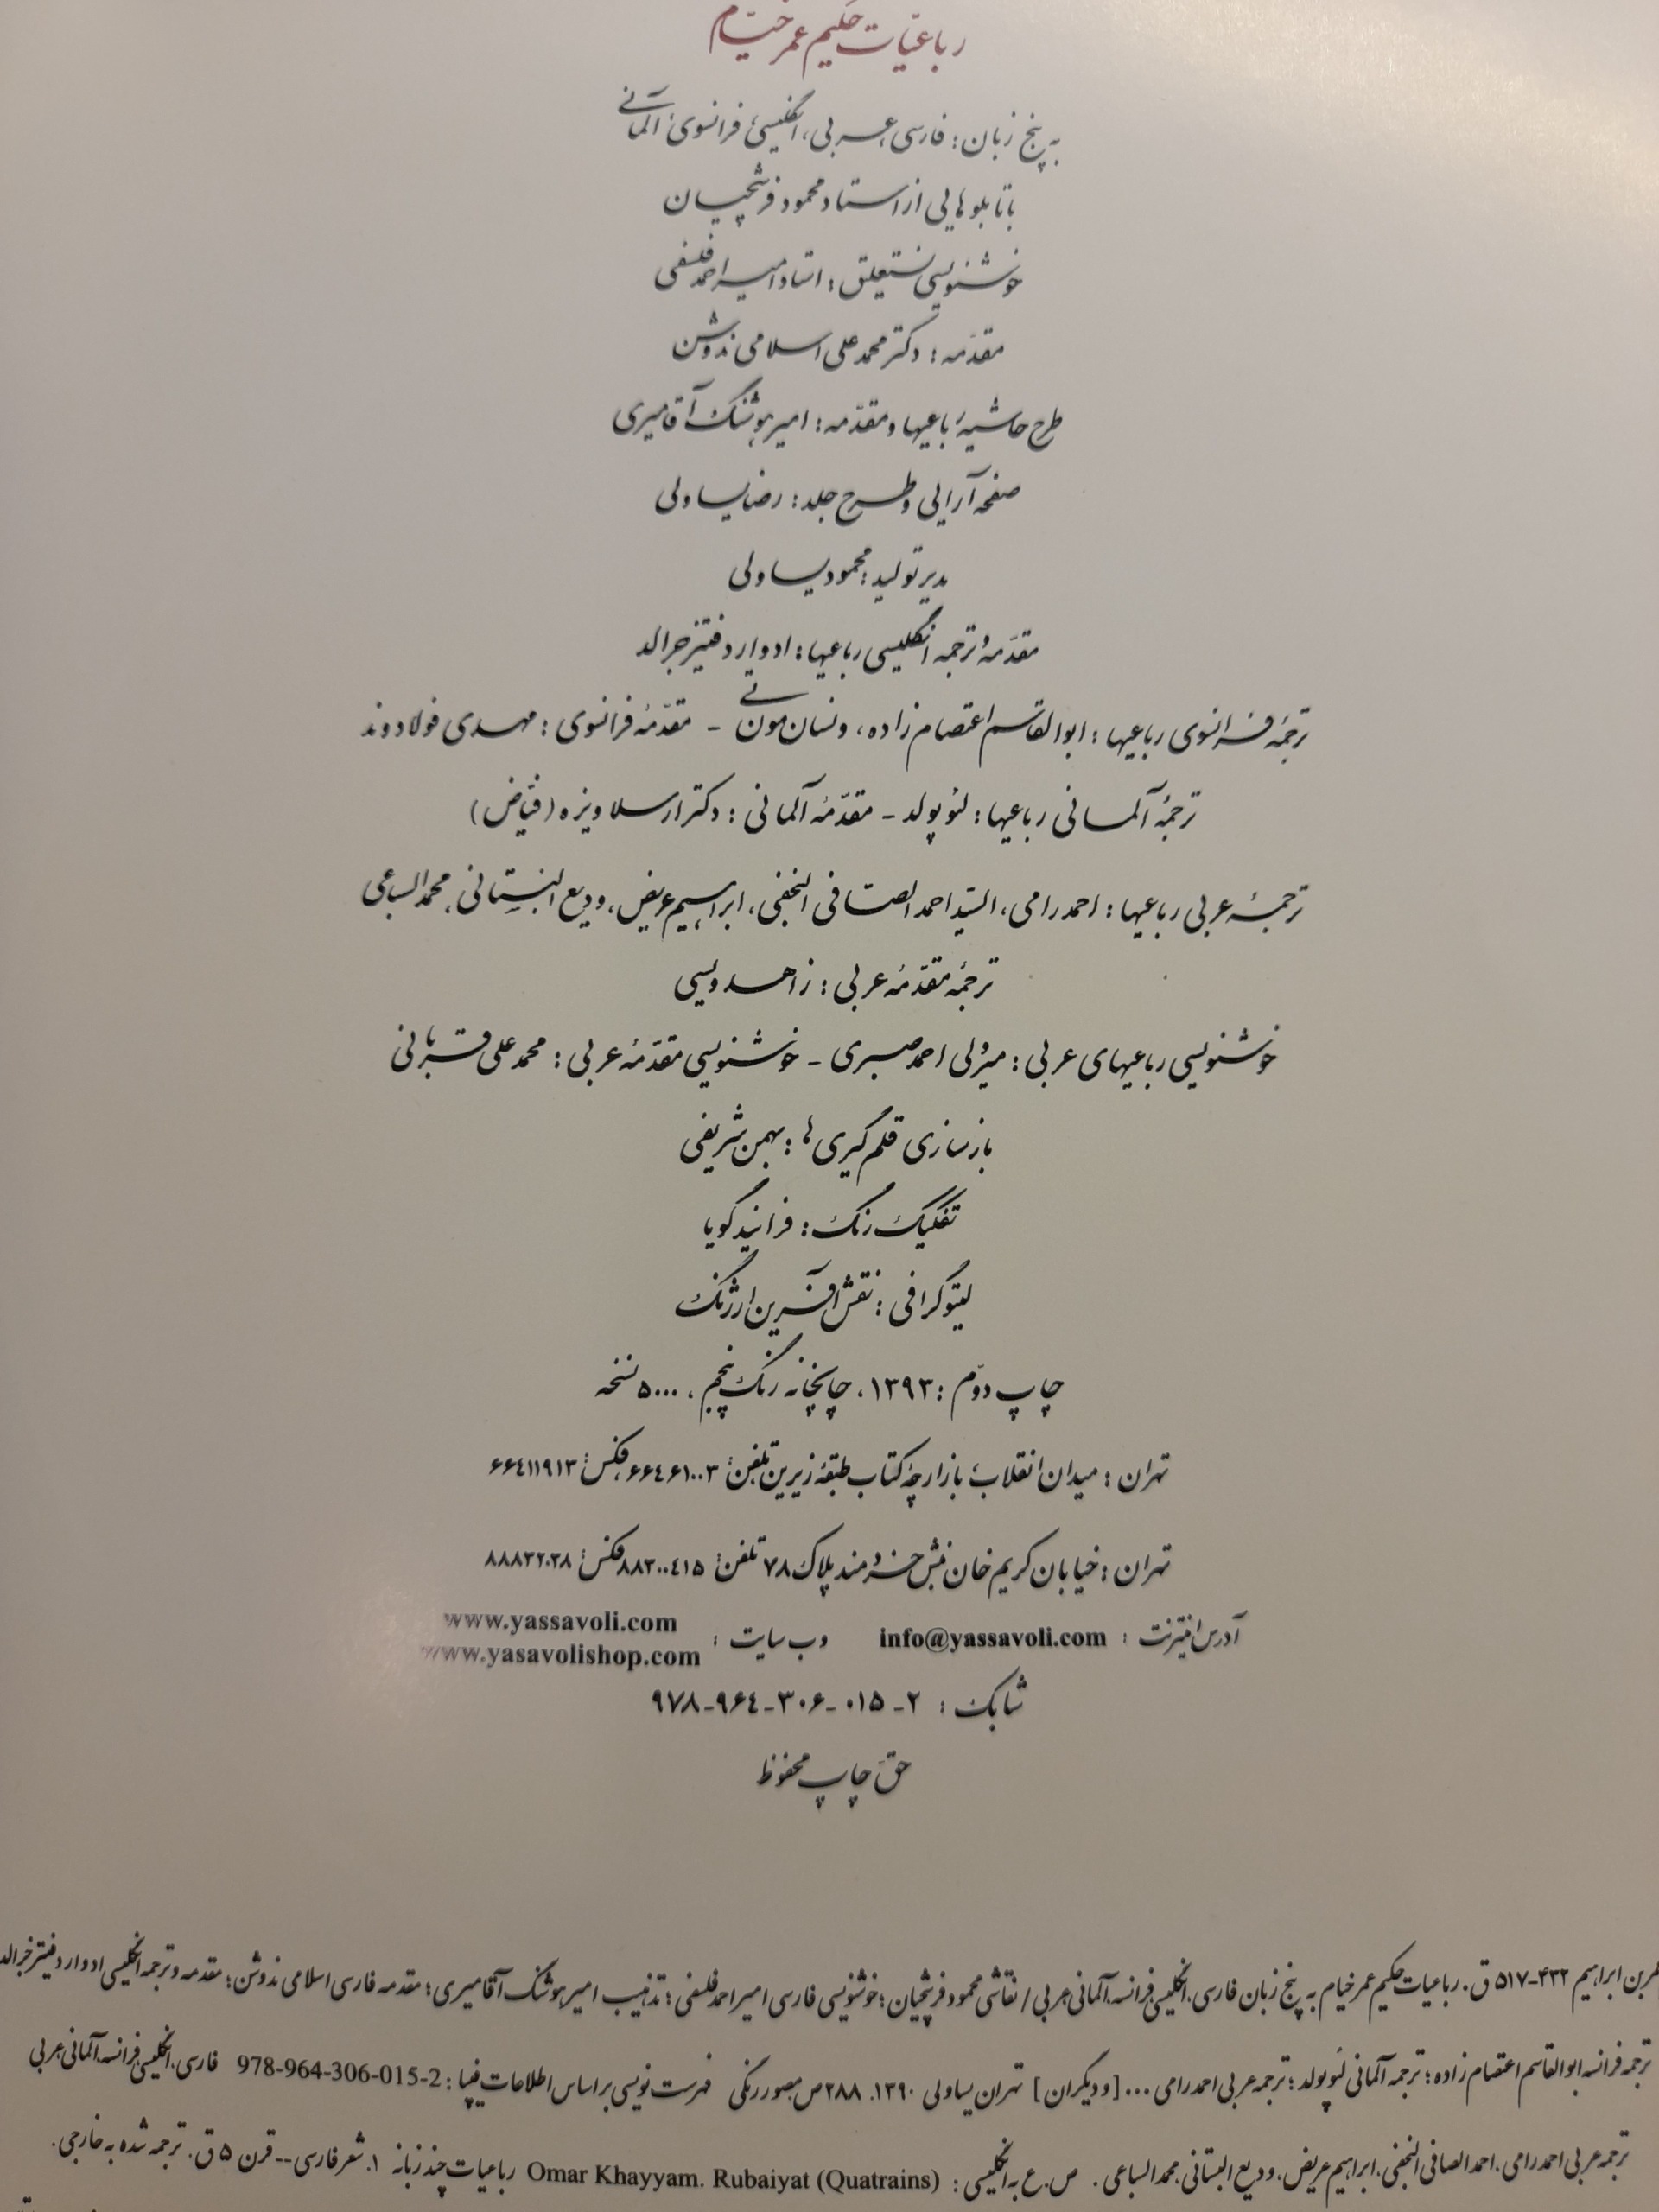 رباعیات حکیم عمر خیام
به پنج زبان: فارسی، عربی، انگلیسی، فرانسوی، آلمانی
با تابلوهایی از استاد محمود فرشچیان
خوشنویسی نستعلیق: استاد امیر احمد فلسفی
مقدّمه: دکتر محمدعلی اسلامی ندوشن
طرح حاشیه رباعیها و مقدّمه: امیرهوشنگ آقامیری
صفحه آرایی و طرح جلد: رضا یساولی
مدیر تولید: محمود یساولی
مقدّمه و ترجمه انگلیسی رباعیها: ادوارد فیتزجرالد
ترجمۀ فرانسوی رباعیها: ابوالقاسم اعتصام زاده، ونسان مونتی - مقدّمۀ فرانسوی: مهدی فولادوند
ترجمۀ آلمانی رباعیها: لئوپولد - مقدّمۀ آلمانی: دکتر ارسلا ویزه (فیّاض)
ترجمۀ عربی رباعیها: احمد رامی، السّید احمد الصّافی النجفی، ابراهیم عریض، ودیع البُستانی، محمد السباعی
ترجمۀ مقدّمۀ عربی: زاهد ویسی
خوشنویسی رباعیهای عربی: میرولی احمد صبری - خوشنویسی مقدّمۀ عربی: محمدعلی قربانی
بازسازی قلم گیری ها: بهمن شریفی
تفکیک رنگ: فرایند گویا
لیتوگرافی: نقش آفرین ارژنگ
چاپ دوّم: ۱۳۹۳، چاپخانه رنگ پنجم، ۵۰۰۰ نسخه
تهران: میدان انقلاب، بازارچۀ کتاب طبقۀ زیرین تلفن: ۶۶۴۶۱۰۰۳ فکس: ۶۶۴۱۱۹۱۳
تهران: خیابان کریم خان نبش خردمند پلاک ۷۸ تلفن: ۸۸۳۰۰۴۱۵ فکس: ۸۸۸۳۲۰۳۸
آدرس اینترنت: info@yassavoli.com وب سایت: www.yassavoli.com
www.yasavolishop.com
شابک: ۹۷۸-۹۶۴-۳۰۶-۰۱۵-۲
حق چاپ محفوظ
عمربن ابراهیم ۴۳۲-۵۱۷ ق. رباعیات حکیم عمر خیام به پنج زبان فارسی، انگلیسی، فرانسه، آلمانی، عربی / نقاشی محمود فرشچیان؛ خوشنویسی فارسی امیراحمد فلسفی؛ تذهیب امیرهوشنگ آقامیری؛ مقدمه فارسی اسلامی ندوشن؛ مقدمه و ترجمه انگلیسی ادوارد فیتزجرالد
ترجمه فرانسه ابوالقاسم اعتصام زاده؛ ترجمه آلمانی لئوپولد؛ ترجمه عربی احمد رامی ... [و دیگران] تهران یساولی ۱۳۹۰. ۲۸۸ ص مصور رنگی فهرست نویسی براساس اطلاعات فیپا: 978-964-306-015-2 فارسی، انگلیسی، فرانسه، آلمانی، عربی
ترجمه عربی احمد رامی، احمد الصافی النجفی، ابراهیم عریض، ودیع البستانی، محمد السباعی. ص.ع به انگلیسی: Omar Khayyam. Rubaiyat (Quatrains) رباعیات چند زبانه ۱. شعر فارسی -- قرن ۵ ق. ترجمه شده به خارجی.